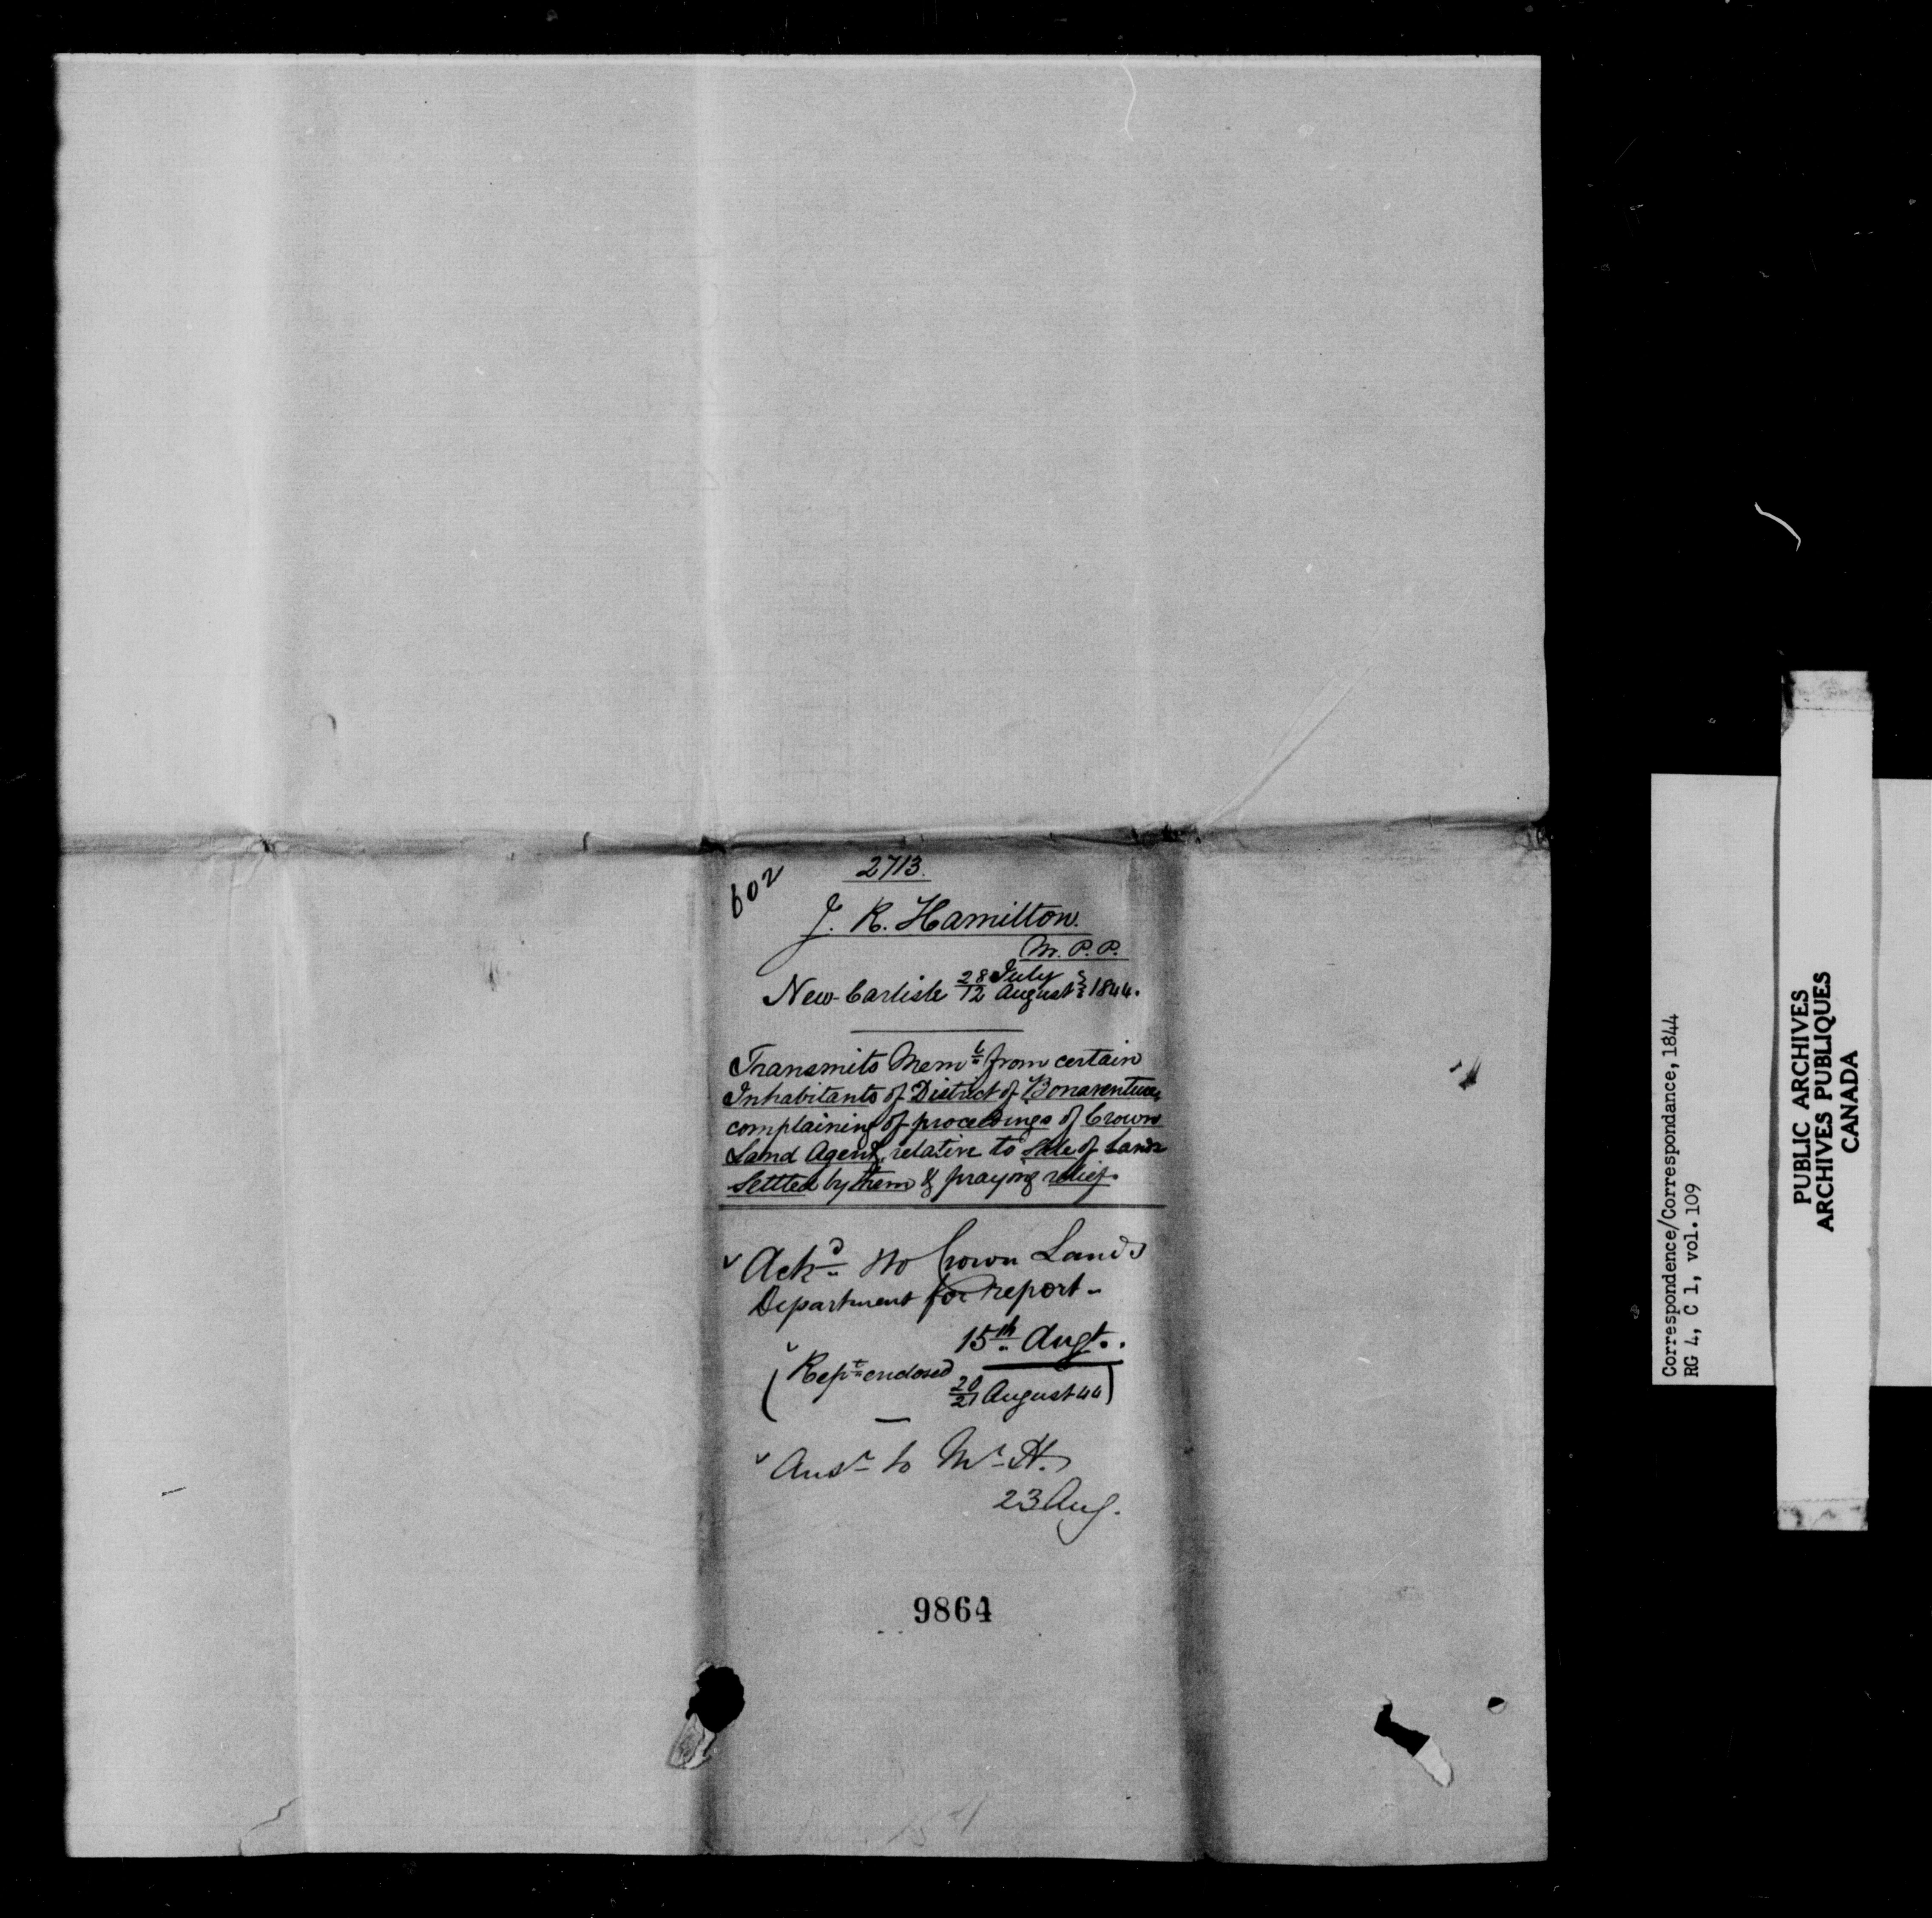 602
2713.
J. R. Hamilton.
M. P. P.
New-Carlisle 28/12 July/August 1844.
Transmits Mem^l from certain
Inhabitants of District of Bonaventure,
complaining of proceedings of Crown
Land Agent, relative to Sale of Lands
Settled by them & praying relief.
Ack^d Crown Lands
Department for report -
15th Augt.
(Rep^t enclosed
20/21 August 44)
Ans^r to M^r H.
23 Aug.
9864
Correspondence/Correspondance, 1844
RG 4, C 1, vol. 109
PUBLIC ARCHIVES
ARCHIVES PUBLIQUES
CANADA